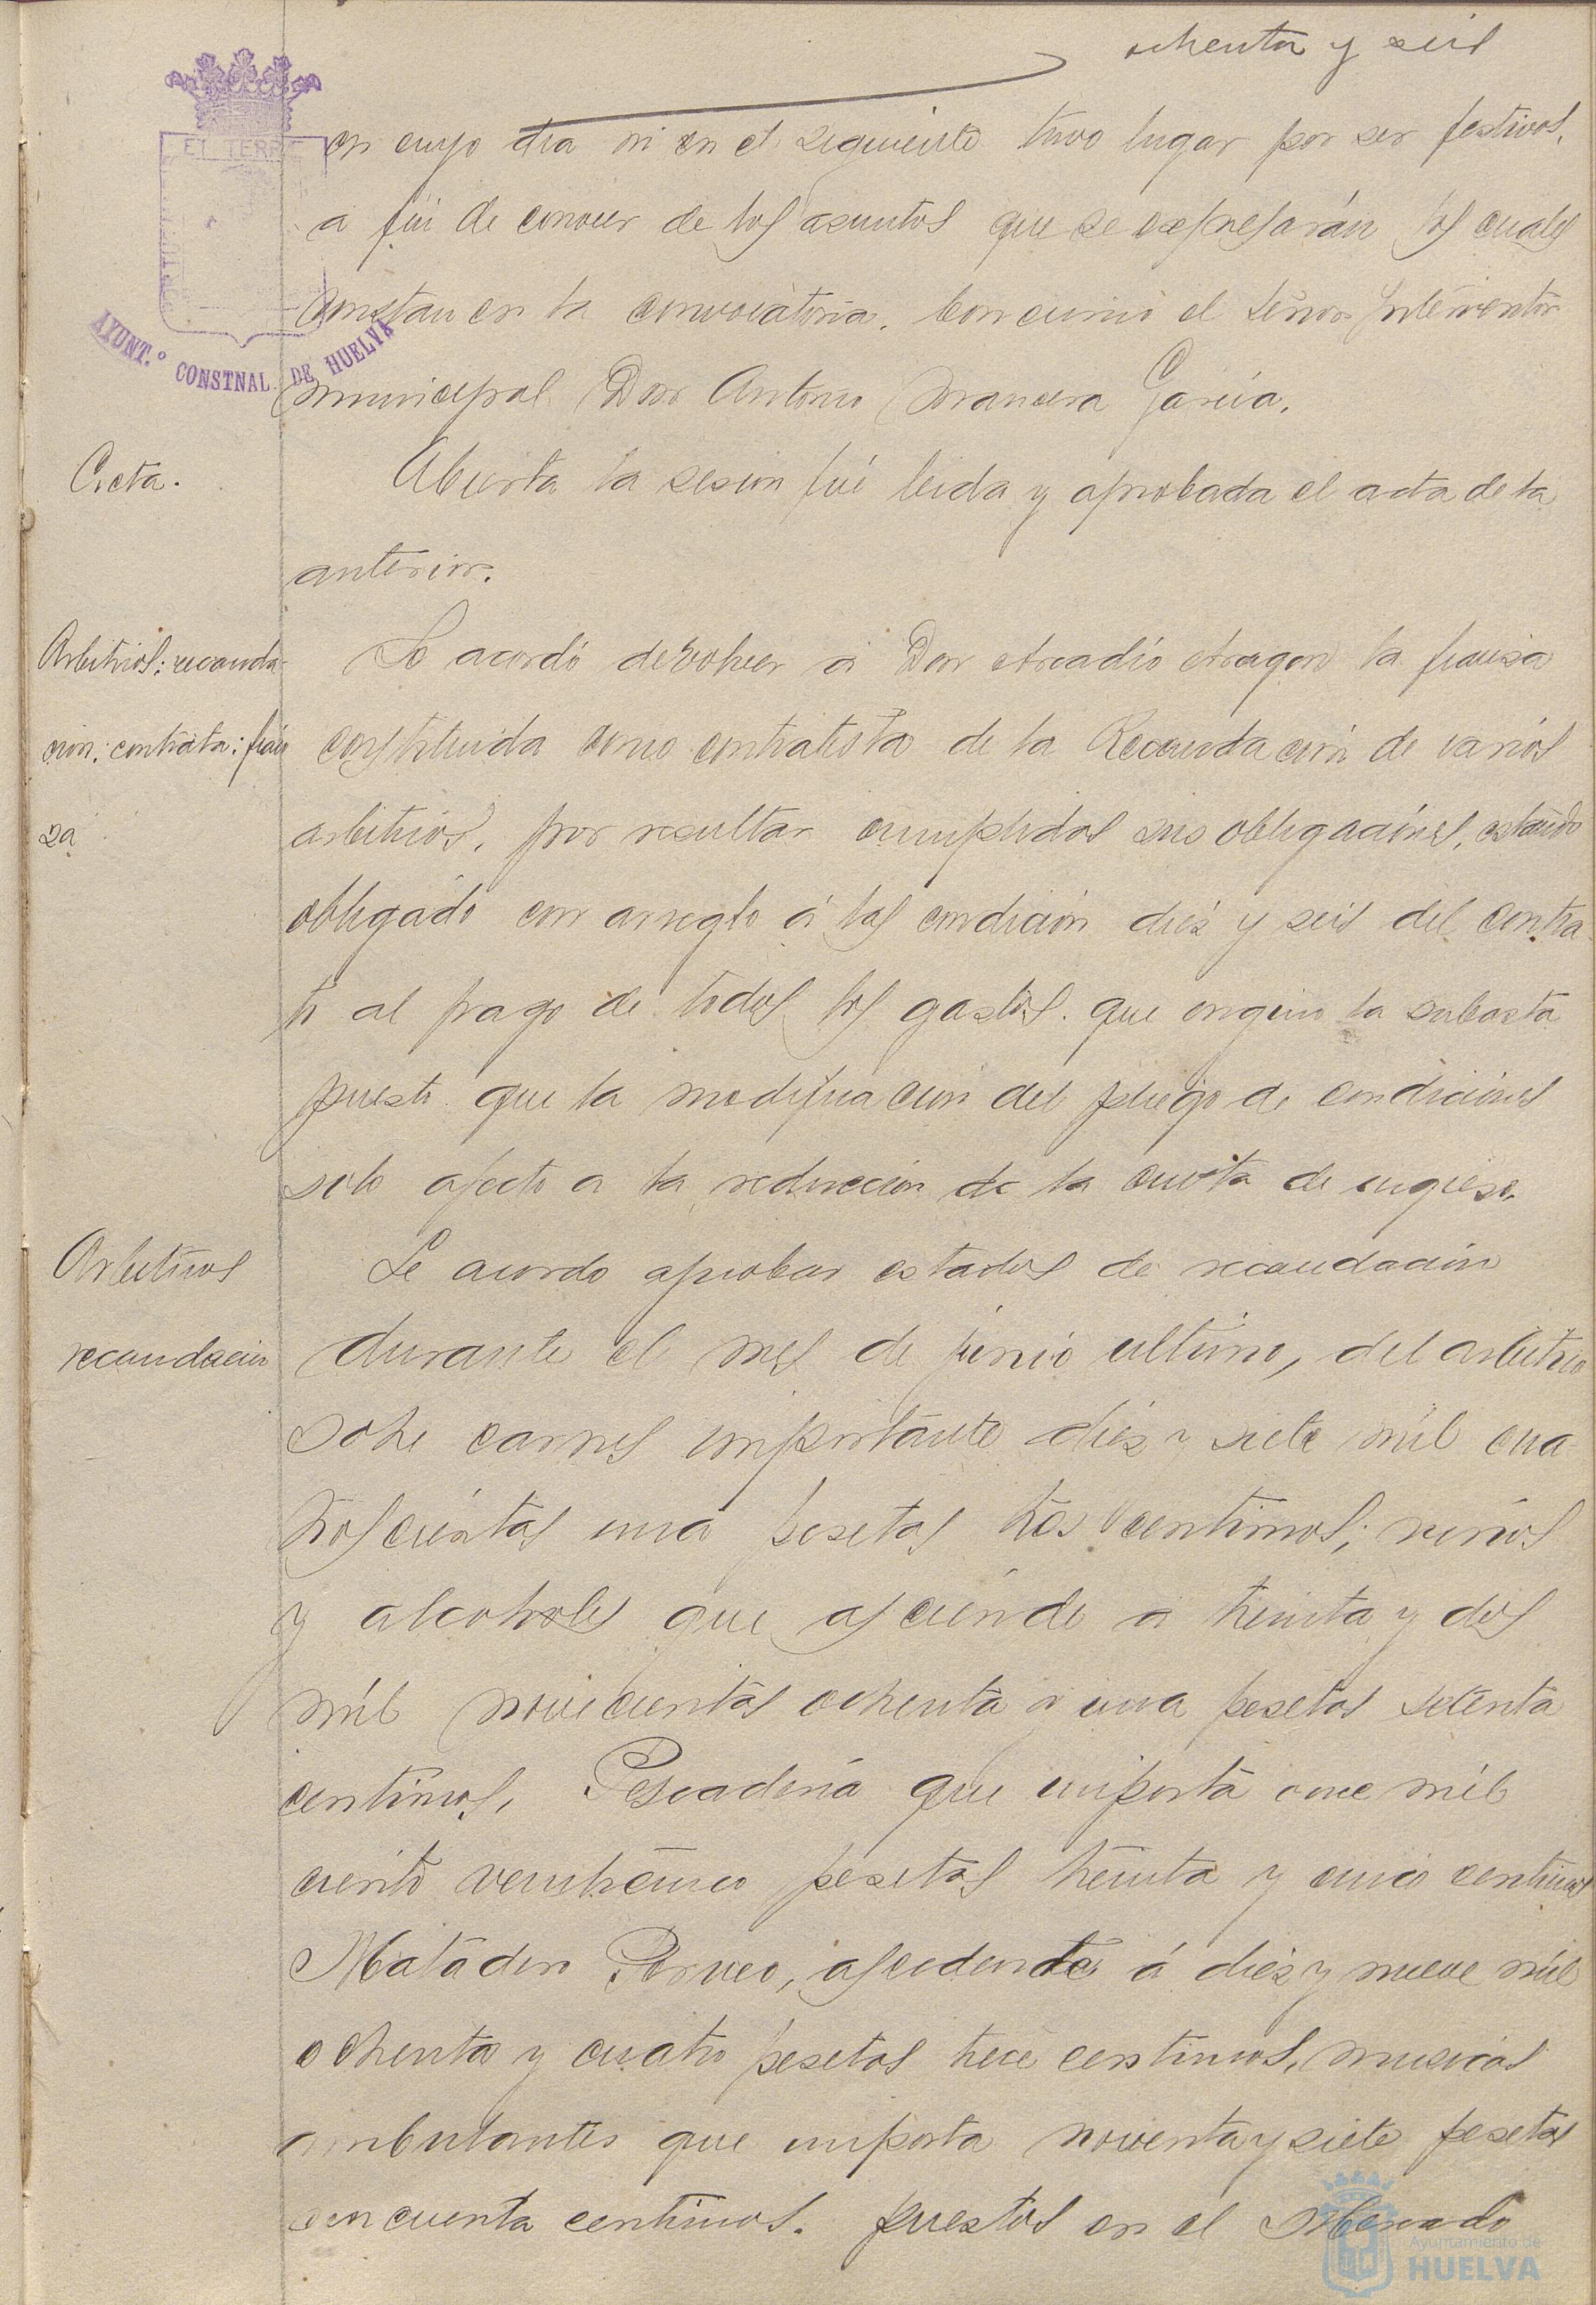 ochenta y seis
en cuyo dia ni en el siguiente tuvo lugar por ser festivos,
a fin de conocer de los asuntos que se expresarán los cuales
constan en la convocatoria. Concurrió el Señor Interventor
municipal Don Antonio Mancera García.
Acta.
Abierta la sesion fué leida y aprobada el acta de la
anterior.
Arbitrios: recauda-
cion: contrata: fian
za
Se acordó devolver á Don Arcadio Aragon la fianza
constituida como contratista de la Recaudación de varios
arbitrios, por resultar cumplidas sus obligaciones, estando
obligado con arreglo á las condición diez y seis del contra
to al pago de todos los gastos que origino la subasta
puesto que la modificacion del pliego de condiciones
solo afecto a la reducción de la cuota de ingreso.
Arbitrios
recaudacion
Se acordo aprobar estados de recaudacion
durante el mes de junio ultimo, del arbitrio
sobre carnes importante diez y siete mil cua
troscientas una pesetas tres centimos; vinos
y alcoholes que asciende a treinta y dos
mil novecientas ochenta y una pesetas setenta
centimos, Pescadería que importa once mil
ciento veinticinco pesetas treinta y cinco centimos
Matadero Porcuo, ascedente á diez y nueve mil
ochenta y cuatro pesetas trece centimos, musicas
ambulantes que importa noventa y siete pesetas
cincuenta centimos. puestos en el Mercado
EL TERR
AYUNT.º CONSTNAL. DE HUELVA
Ayuntamiento de
HUELVA